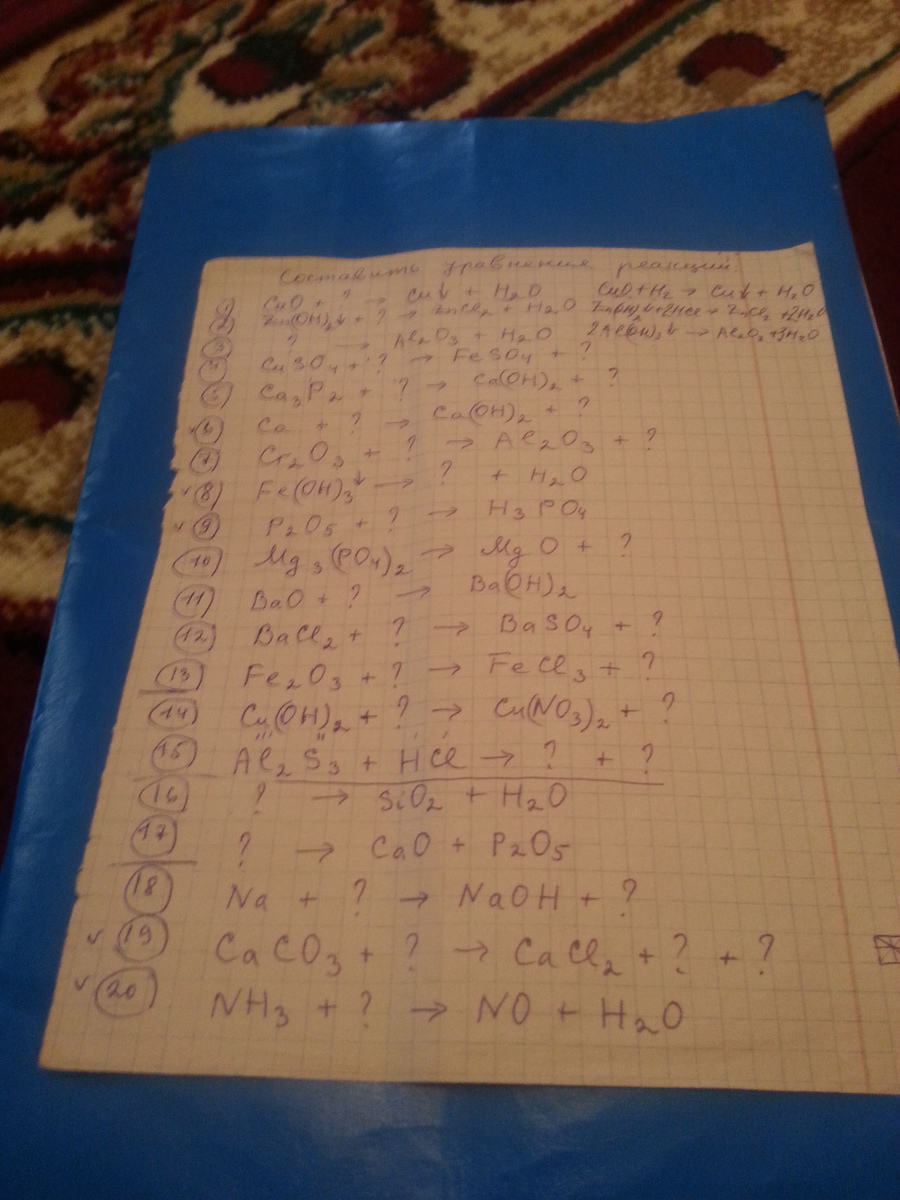 Составить уравнения реакций.
1) CuO + ? → Cu↓ + H2O CuO + H2 → Cu↓ + H2O
2) Zn(OH)2↓ + ? → ZnCl2 + H2O Zn(OH)2↓ + 2HCl → ZnCl2 + 2H2O
3) ? → Al2O3 + H2O 2Al(OH)3↓ → Al2O3 + 3H2O
4) CuSO4 + ? → FeSO4 + ?
5) Ca3P2 + ? → Ca(OH)2 + ?
✓ 6) Ca + ? → Ca(OH)2 + ?
7) Cr2O3 + ? → Al2O3 + ?
✓ 8) Fe(OH)3↓ → ? + H2O
✓ 9) P2O5 + ? → H3PO4
10) Mg3(PO4)2 → MgO + ?
11) BaO + ? → Ba(OH)2
12) BaCl2 + ? → BaSO4 + ?
13) Fe2O3 + ? → FeCl3 + ?
14) Cu(OH)2 + ? → Cu(NO3)2 + ?
15) Al2S3 + HCl → ? + ?
16) ? → SiO2 + H2O
17) ? → CaO + P2O5
18) Na + ? → NaOH + ?
✓ 19) CaCO3 + ? → CaCl2 + ? + ?
✓ 20) NH3 + ? → NO + H2O